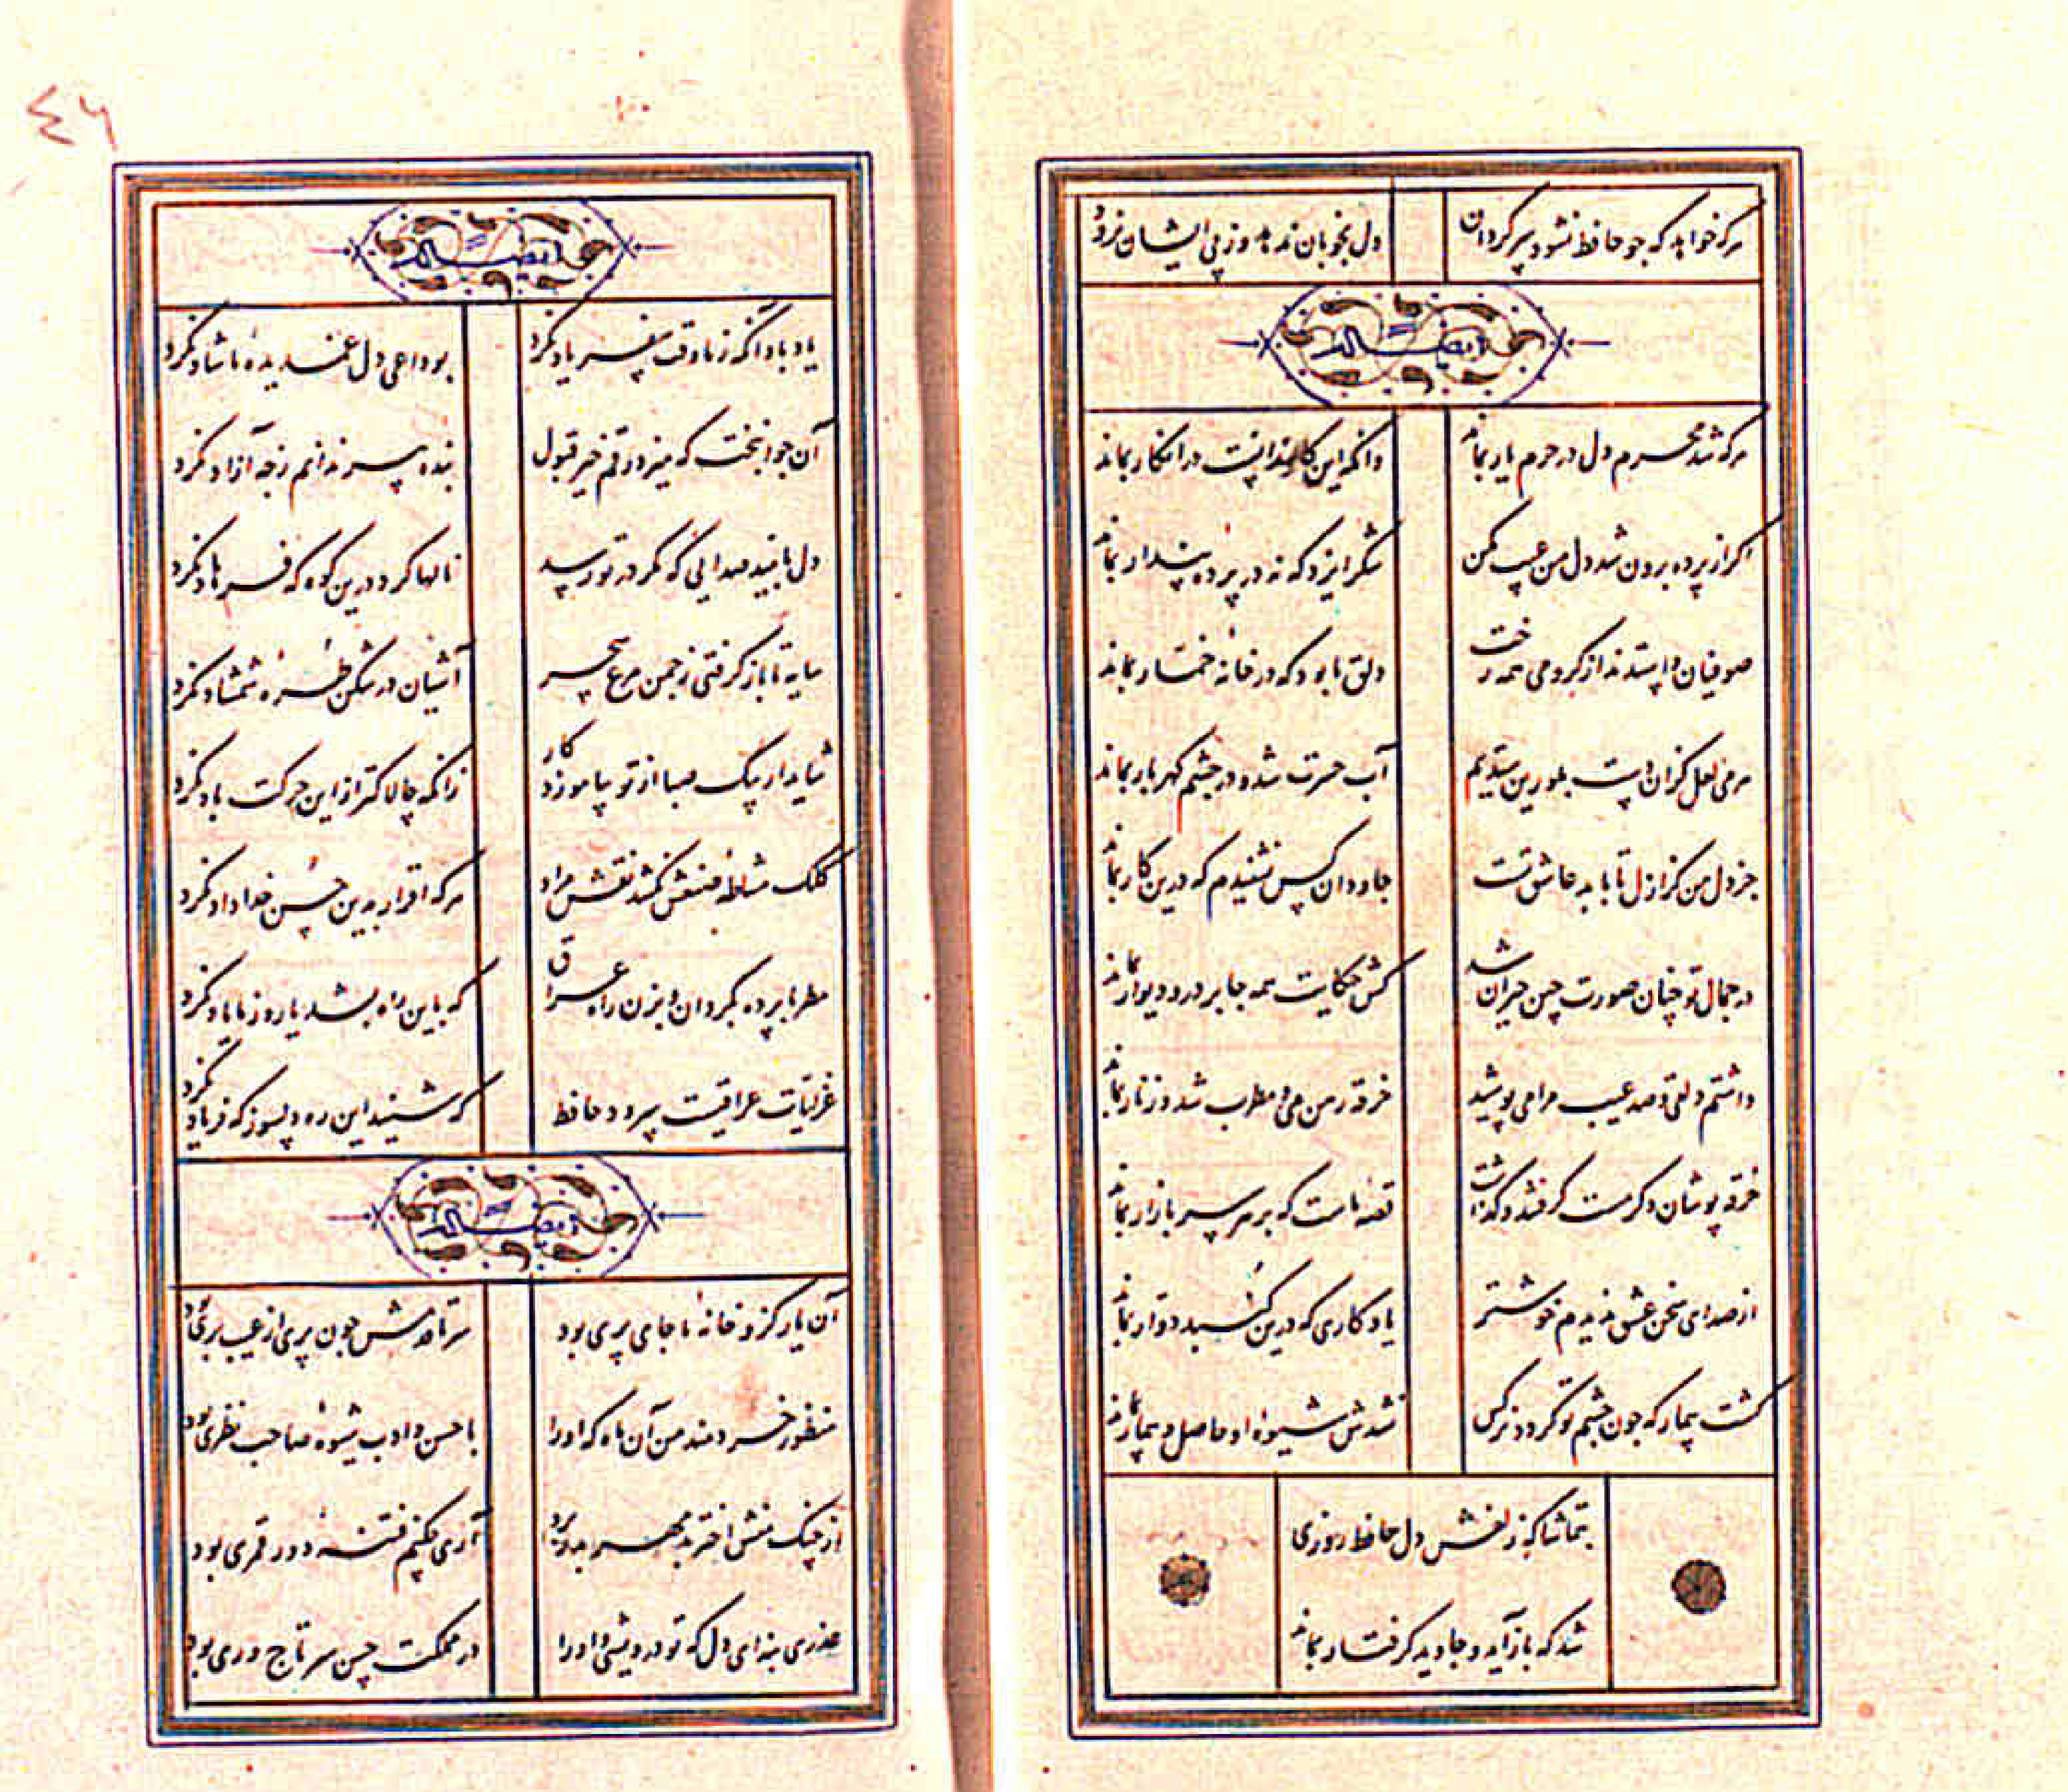 هرکه خواهد که چو حافظ نشود سرگردان
دل بخوبان ندهد وز پی ایشان نرود
ایضاً له
هرکه شد محرم دل در حرم یار بماند
وانکه این کار ندانست در انکار بماند
اگر از پرده برون شد دل من عیب مکن
شکر ایزد که نه در پردهٔ پندار بماند
صوفیان واستدند از گرو می همه رخت
دلق ما بود که در خانهٔ خمار بماند
هر می لعل کزان دست بلورین ستدیم
آب حسرت شد و در چشم گهر بار بماند
جز دل من کز ازل تا بابد عاشق تست
جاودان کس نشنیدم که درین کار بماند
در جمال تو چنان صورت چین حیران شد
کش حکایت همه جا بر در و دیوار بماند
داشتم دلقی و صد عیب مرا می پوشید
خرقه رهن می و مطرب شد و زنار بماند
خرقه پوشان دگر مست گرفتند و گذشت
قصهٔ ماست که بر هر سر بازار بماند
از صدای سخن عشق ندیدم خوشتر
یادگاری که درین گنبد دوار بماند
گشت بیمار که چون چشم تو گردد نرگس
نشدش شیوهٔ او حاصل و بیمار بماند
بتماشاگه زلفش دل حافظ روزی
شد که باز آید و جاوید گرفتار بماند
٤٦
ایضاً له
یاد باد آنکه ز ما وقت سفر یاد نکرد
بوداعی دل غمدیدهٔ ما شاد نکرد
آن جوانبخت که میزد رقم خیر قبول
بنده پیر ندانم ز چه آزاد نکرد
دل بامید صدایی که مگر در تو رسد
نالها کرد درین کوه که فرهاد نکرد
سایه تا باز گرفتی ز چمن مرغ سحر
آشیان در شکن طرهٔ شمشاد نکرد
شاید ار پیک صبا از تو بیاموزد کار
زانکه چالاکتر از این حرکت باد نکرد
کلک مشاطه صنعش نکشد نقش مراد
هرکه اقرار بدین حسن خداداد نکرد
مطربا پرده بگردان و بزن راه عراق
که باین راه بشد یار و ز ما یاد نکرد
غزلیات عراقیست سرود حافظ
که شنید این ره دلسوز که فریاد نکرد
ایضاً له
آن یار کزو خانهٔ ما جای پری بود
سر تا قدمش چون پری از عیب بری بود
منظور خردمند من آن ماه که او را
با حسن و ادب شیوهٔ صاحب نظری بود
از چنگ منش اختر بدمهر بدر برد
آری چکنم فتنهٔ دور قمری بود
عذری بنه ای دل که تو درویشی و او را
در مملکت حسن سر تاجوری بود